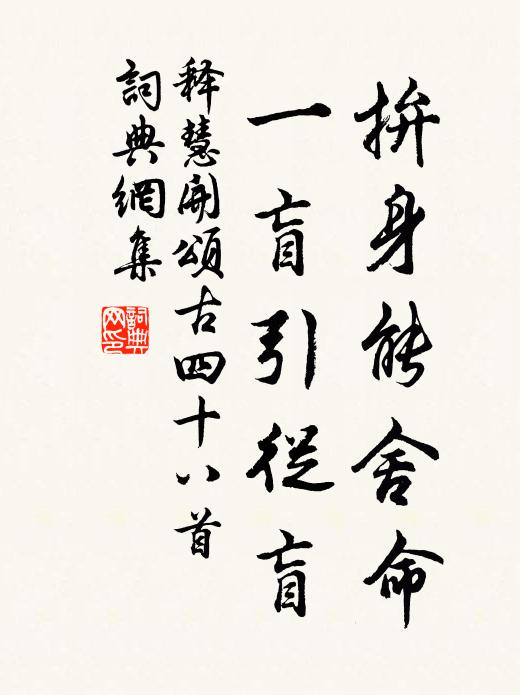 拚身能舍命
一盲引從盲
释慧開頌古四十八首
詞典網集
詞典网印